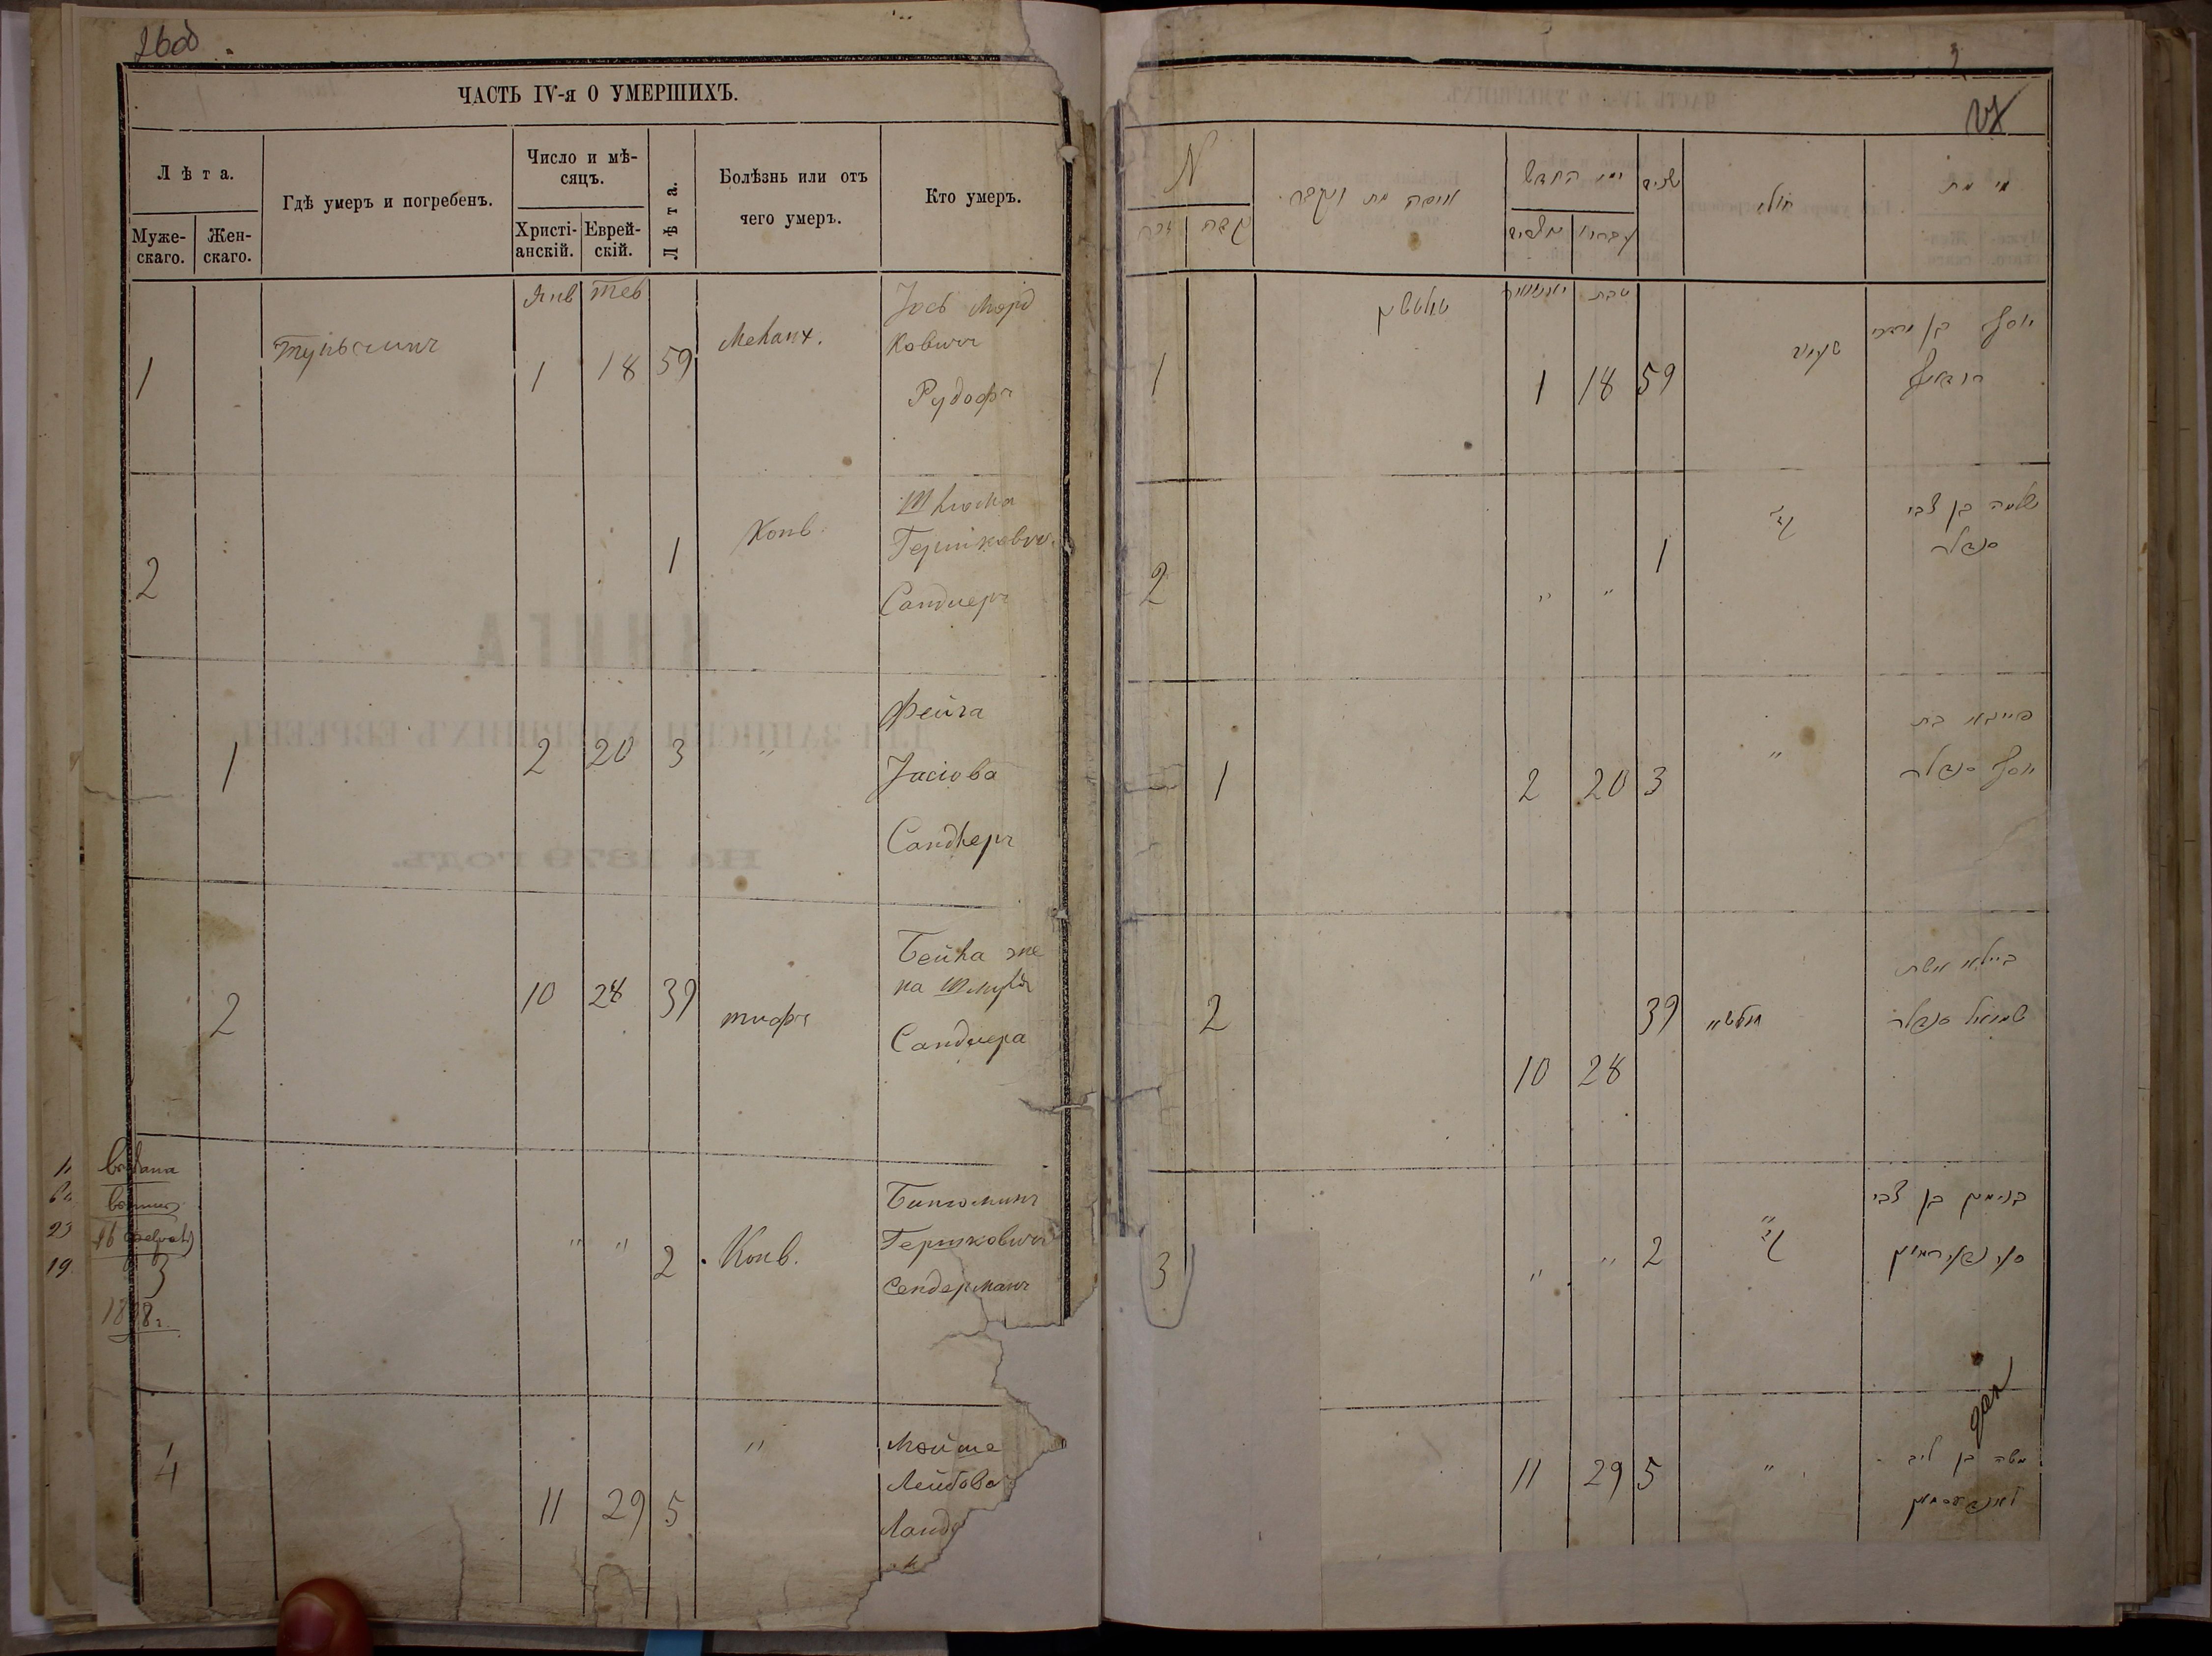 ЧАСТЬ IV-я О УМЕРШИХЪ.
Лѣта.
Муже-
скаго.
Жен-
скаго.
Гдѣ умеръ и погребенъ.
Число и мѣ-
сяцъ.
Христі-
анскій.
Еврей-
скій.
Лѣта.
Болѣзнь или отъ
чего умеръ.
Кто умеръ.
Янв Тев
1 Тульчинъ 1 18 59 Меланх.
Іось Морд
ковичъ
Рудофъ
2 1 Конв.
Шлиома
Гершкович
Сандлеръ
1 2 20 3 "
Фейга
Іосіова
Сандлеръ
2 10 28 39 тифъ
Бейла же
на Шмуля
Сандлера
3 " " 2 Конв.
Биніоминъ
Гершковичъ
Сендерманъ
1878 г.
4 11 29 5 "
Мойше
Лейбова
Ланд
N
זכר
נקבה
איפה מת ונקבר
ימי החדש
שנים
חולי
מי מת
טבת
1 1 18 59
יוסף בן מרדכי
רודאף
2 " " 1
שלמה בן צבי
סנדלר
1 2 20 3 "
פייגא בת
יוסף סנדלר
2 10 28 39
ביילא אשת
שמואל סנדלר
3 " " 2
בנימין בן צבי
11 29 5 "
משה בן ליב